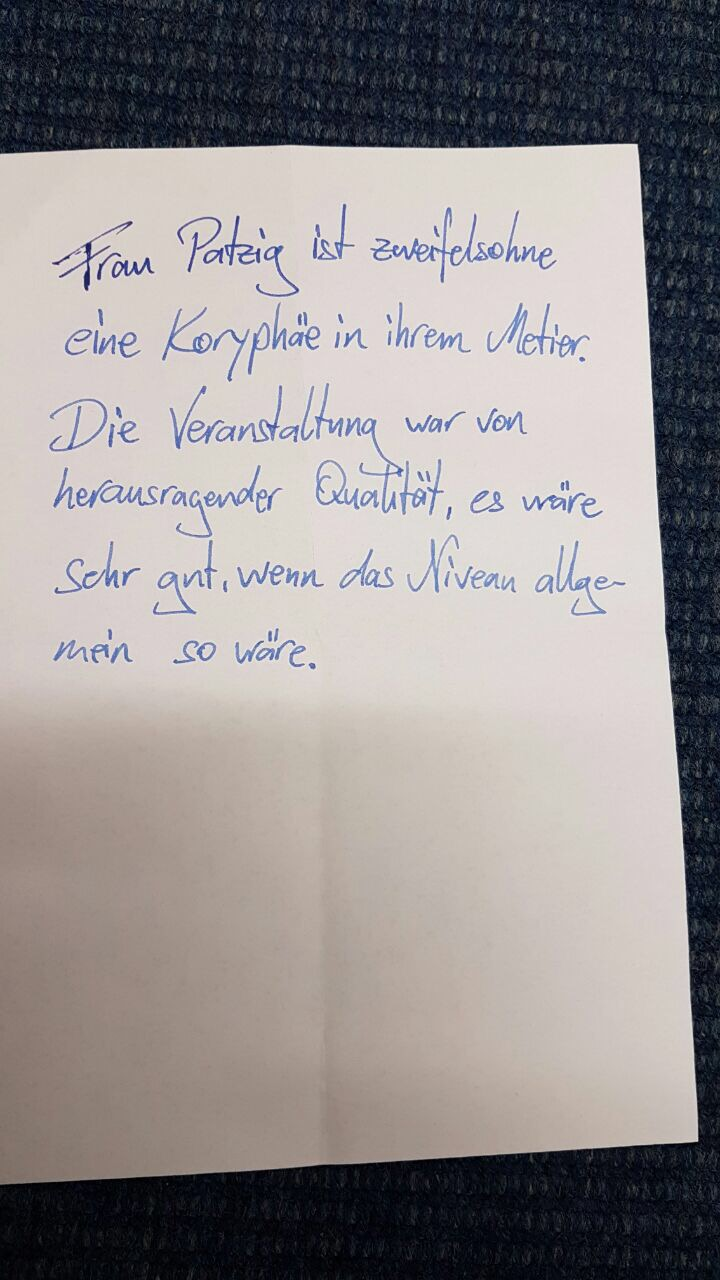 Frau Patzig ist zweifelsohne
eine Koryphäe in ihrem Metier.
Die Veranstaltung war von
herausragender Qualität, es wäre
sehr gut, wenn das Niveau allge-
mein so wäre.